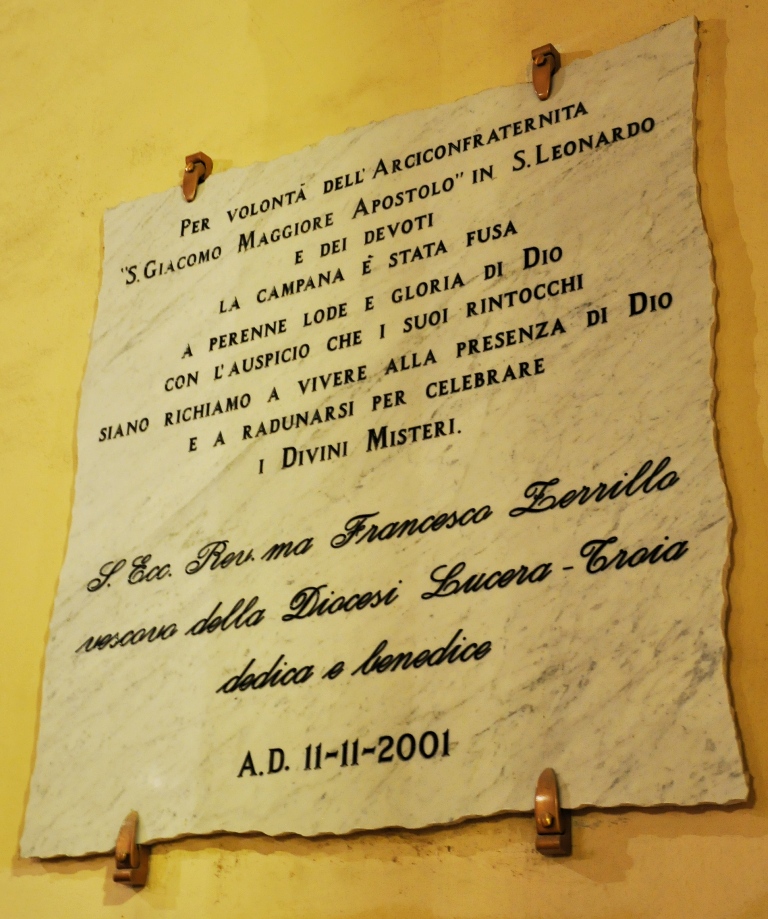 PER VOLONTÀ DELL'ARCICONFRATERNITA
"S.GIACOMO MAGGIORE APOSTOLO" IN S.LEONARDO
E DEI DEVOTI
LA CAMPANA È STATA FUSA
A PERENNE LODE E GLORIA DI DIO
CON L'AUSPICIO CHE I SUOI RINTOCCHI
SIANO RICHIAMO A VIVERE ALLA PRESENZA DI DIO
E A RADUNARSI PER CELEBRARE
I DIVINI MISTERI.
S. Ecc. Rev.ma Francesco Zerrillo
vescovo della Diocesi Lucera-Troia
dedica e benedice
A.D. 11-11-2001